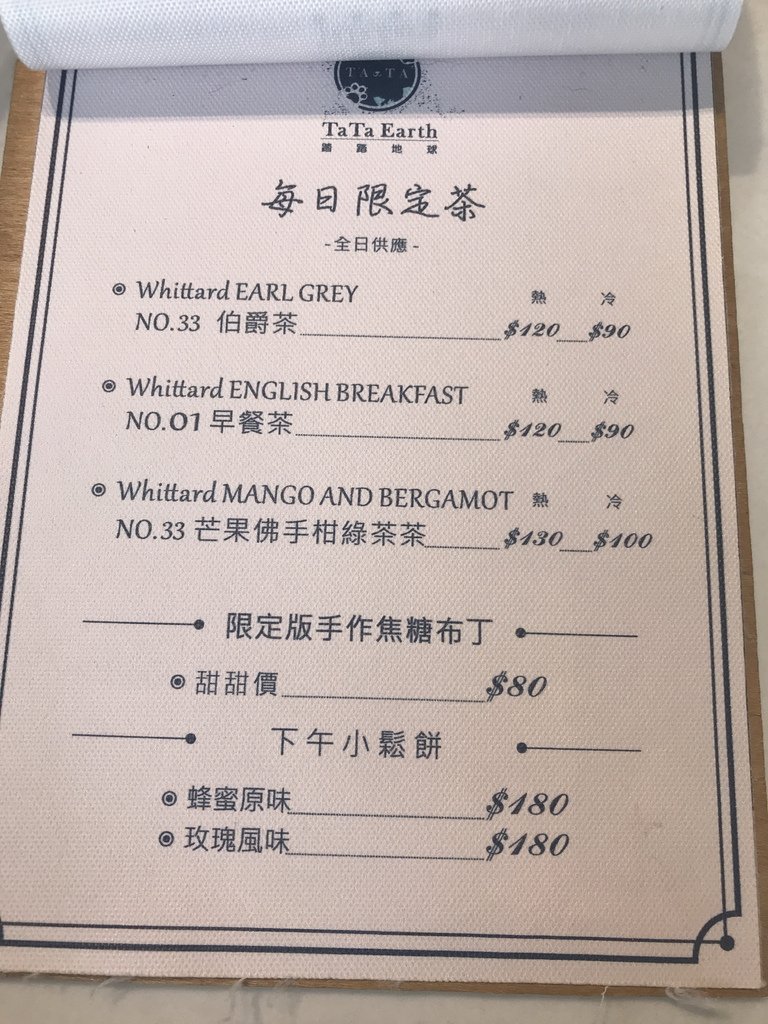 TA TA
TaTa Earth
踏踏地球
每日限定茶
-全日供應-
Whittard EARL GREY 熱 冷
NO.33 伯爵茶 $120 $90
Whittard ENGLISH BREAKFAST 熱 冷
NO.01 早餐茶 $120 $90
Whittard MANGO AND BERGAMOT 熱 冷
NO.33 芒果佛手柑綠茶茶 $130 $100
限定版手作焦糖布丁
甜甜價 $80
下午小鬆餅
蜂蜜原味 $180
玫瑰風味 $180